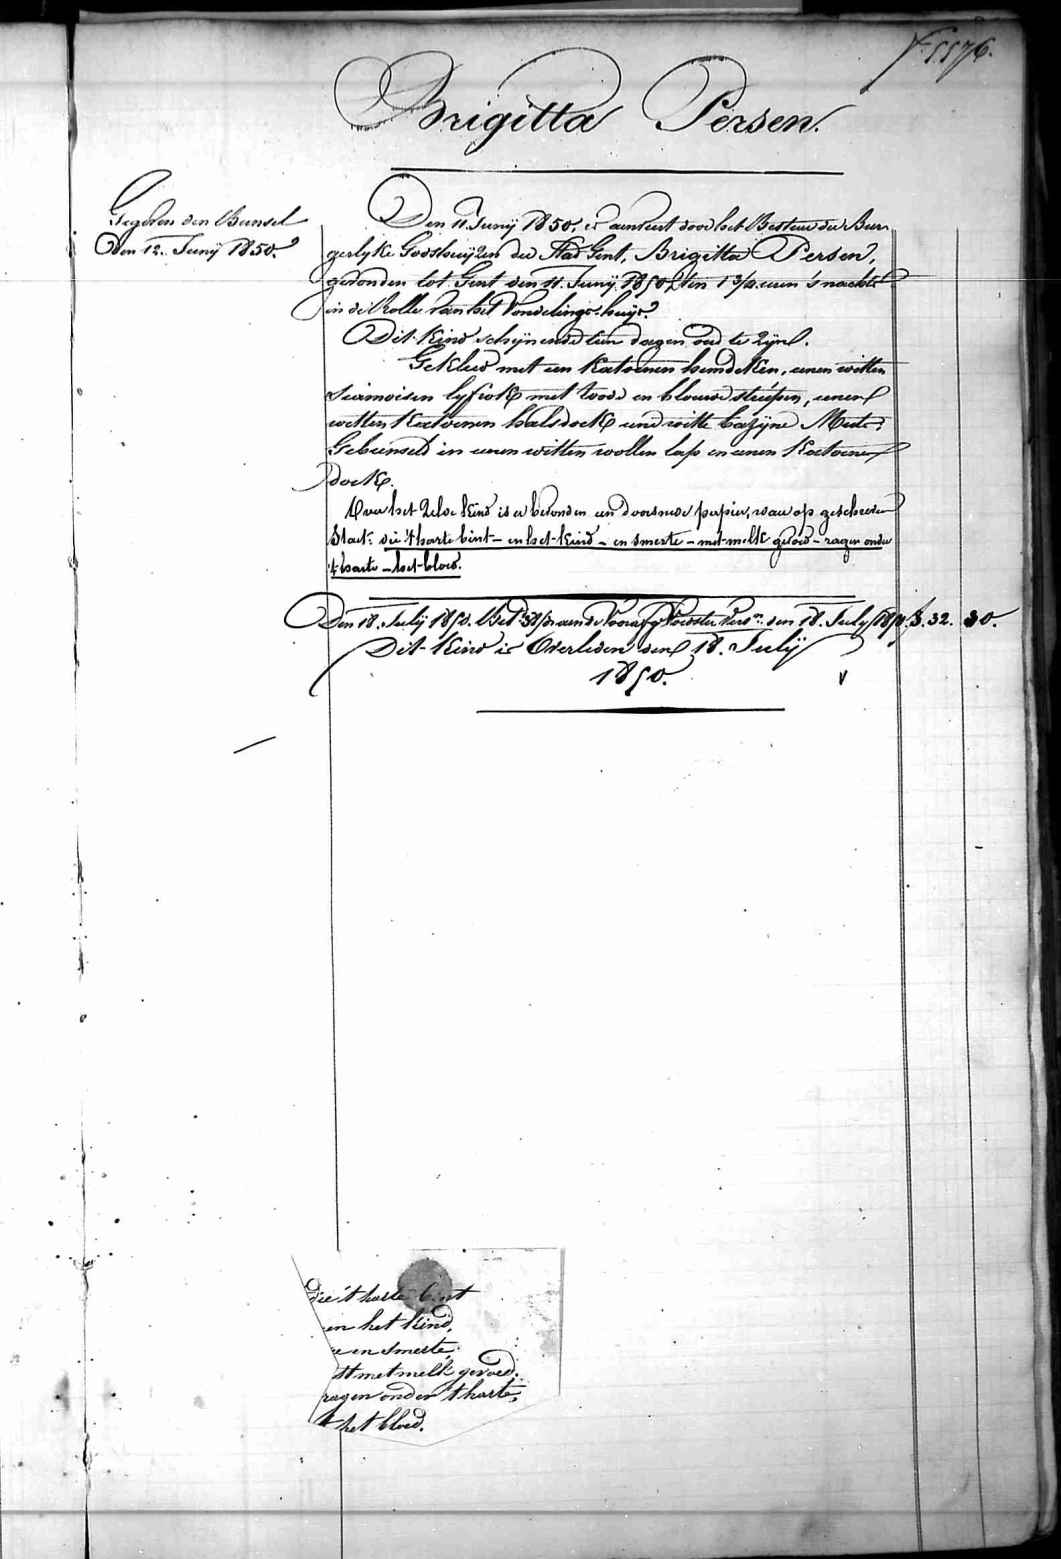 N° 5576.
Brigitta Persen.
Gegeven den Bunsel
den 12. Junij 1850.
Den 11. Junij 1850. is aenveert door het Bestier der Bur-
gerlyke Godshuijzen der Stad Gent, Brigitta Persen,
gevonden tot Gent den 11. Junij 1850 ten 1 3/4 uren 's nachts
in de Rolle van het Vondelings-huijs.
Dit Kind schijnende een dagen oud te zijn.
Gekleed met een Katoenen hemdeken, eenen witten
Siamoisen lyfrok met roode en blauwe striépen, eenen
witten Katoenen halsdoek eene witte bazijne Muts.
Gebunseld in eenen witten wollen lap en eenen Katoenen
doek.
Over het zelve Kind is er bevonden een doorsnede papier, waer op geschreven
staet: die 't harte bint - en het Kind - en smerte - met melk gevoed - ragen onder
't harte - het bloed.
Den 18. Julij 1850. Bet. aen de Voedster den 18. July 1850. 3. 32. 30.
Dit Kind is Overleden den 18. Julij
1850.
die 't harte bint
en het Kind,
e en smerte,
st met melk gevoed.
ragen onder 't harte,
t het bloed.